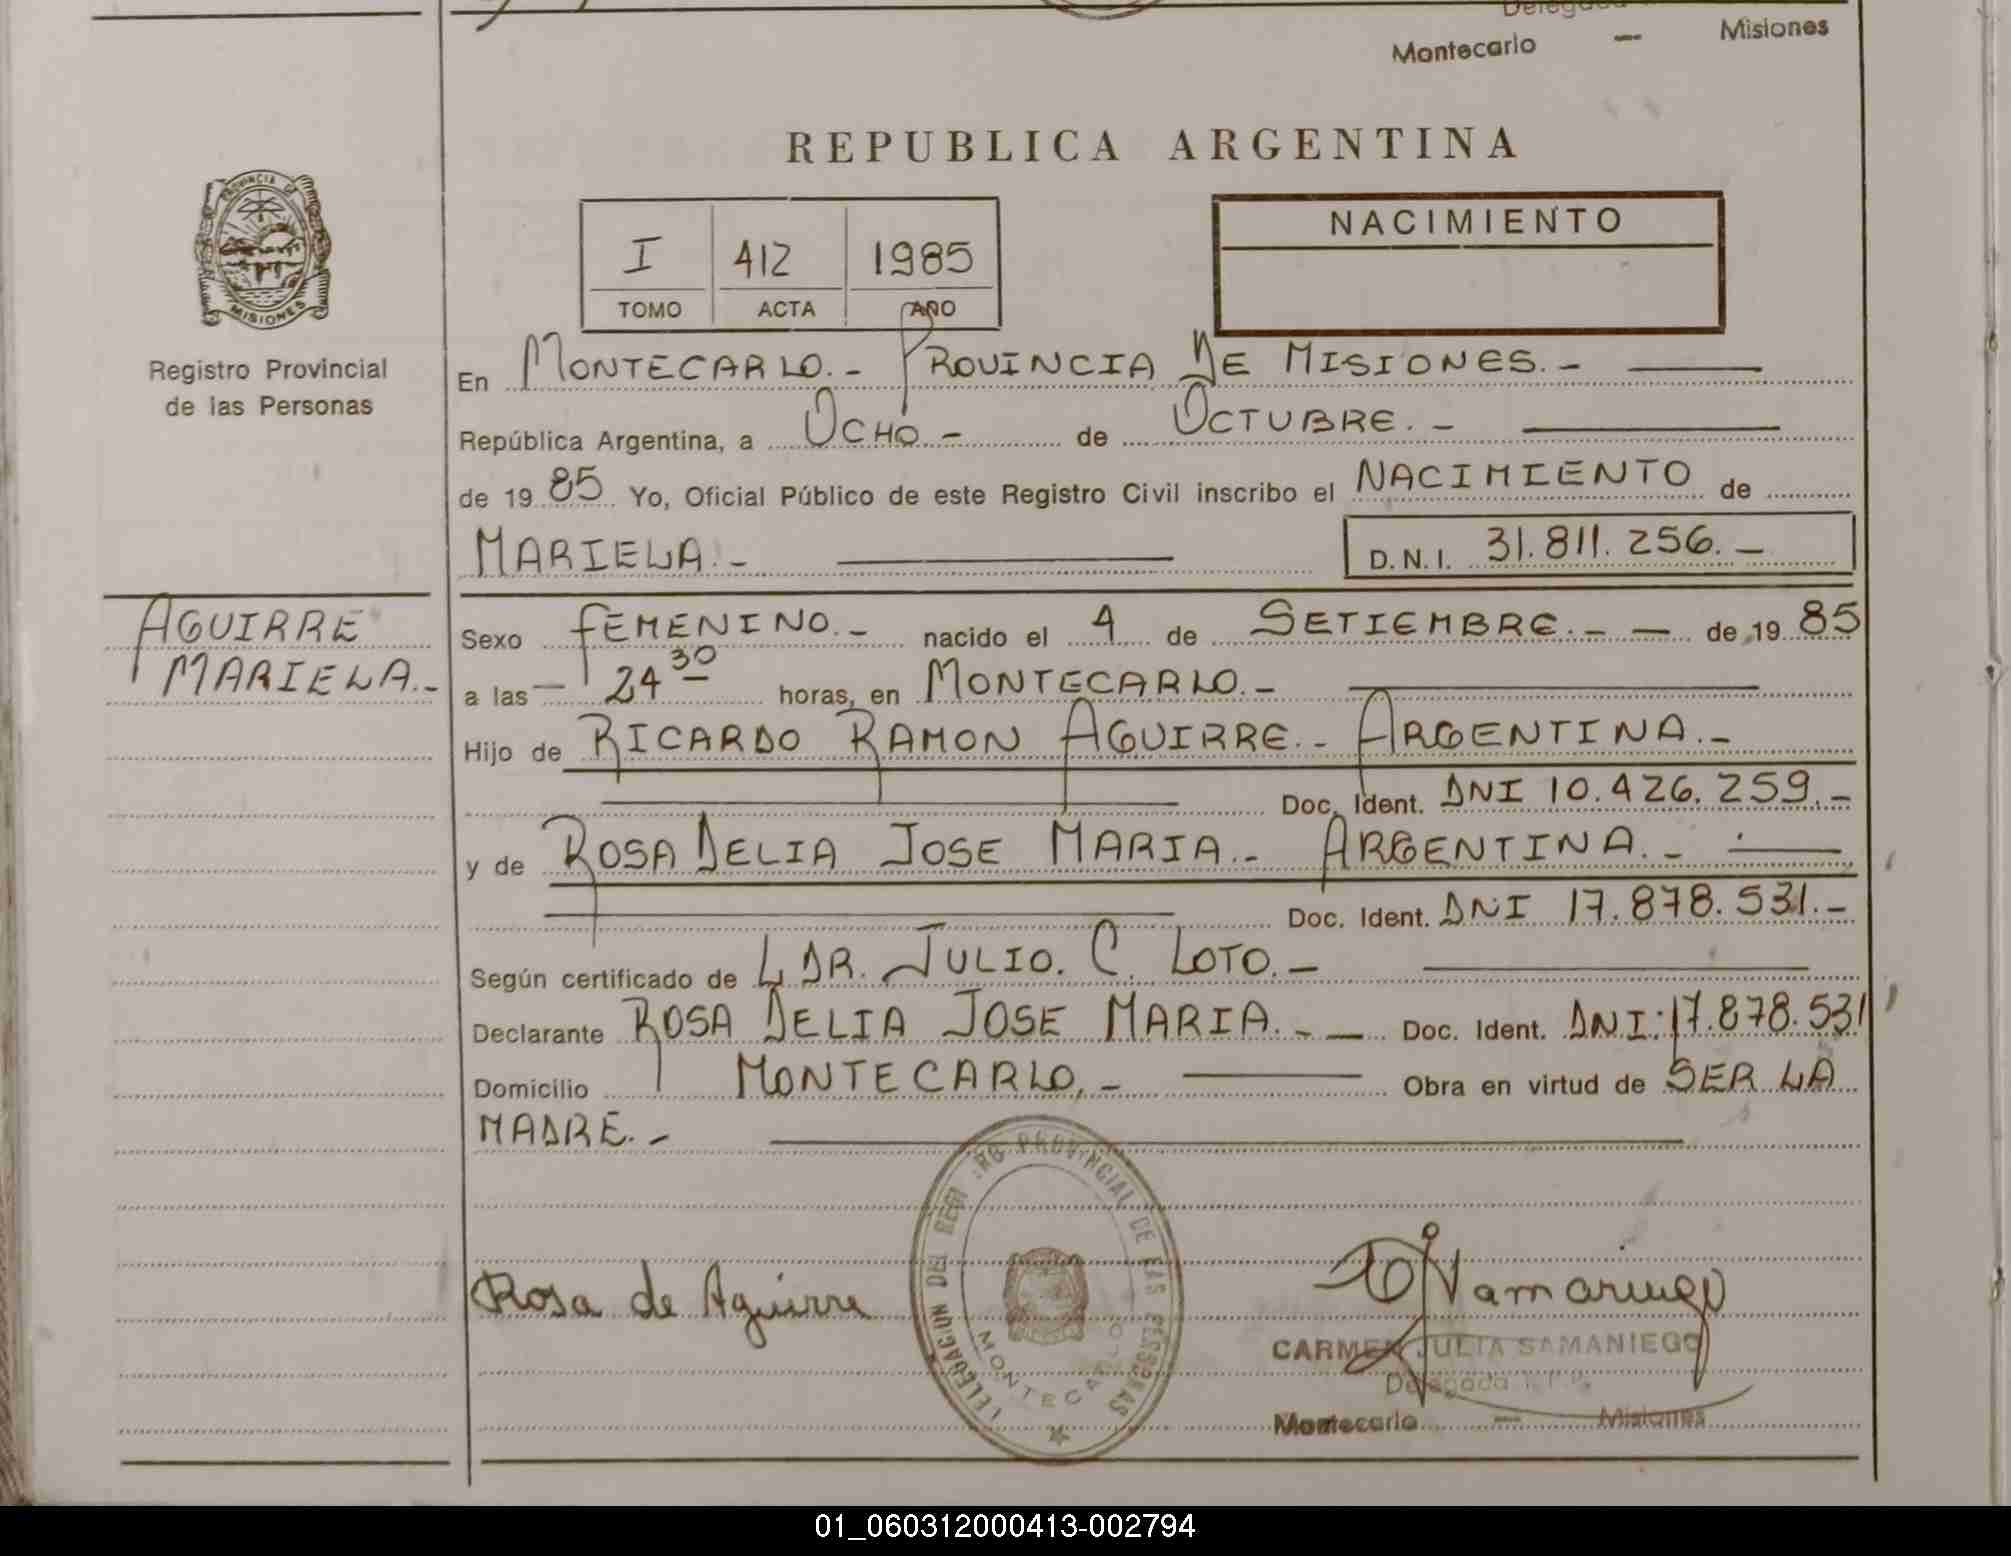 Delegada
Montecarlo — Misiones
REPUBLICA ARGENTINA
PROVINCIA DE
MISIONES
Registro Provincial
de las Personas
I 412 1985
TOMO ACTA AÑO
NACIMIENTO
En MONTECARLO.- PROVINCIA DE MISIONES.-
República Argentina, a OCHO.- de OCTUBRE.-
de 1985 Yo, Oficial Público de este Registro Civil inscribo el NACIMIENTO de
MARIELA.- D.N.I. 31.811.256.-
AGUIRRE
MARIELA.-
Sexo FEMENINO.- nacido el 4 de SETIEMBRE.- - de 1985
a las - 24 30 horas, en MONTECARLO.-
Hijo de RICARDO RAMON AGUIRRE.- ARGENTINA.-
Doc. Ident. DNI 10.426.259.-
y de ROSA DELIA JOSE MARIA.- ARGENTINA.-
Doc. Ident. DNI 17.878.531.-
Según certificado de L DR. JULIO. C. LOTO.-
Declarante ROSA DELIA JOSE MARIA.- - Doc. Ident. DNI: 17.878.531
Domicilio MONTECARLO.- Obra en virtud de SER LA
MADRE.-
DELEGACION DEL REGISTRO PROVINCIAL DE LAS PERSONAS
MONTECARLO
Rosa de Aguirre
CARMEN JULIA SAMANIEGO
Delegada R.P.P.
Montecarlo — Misiones
01_060312000413-002794